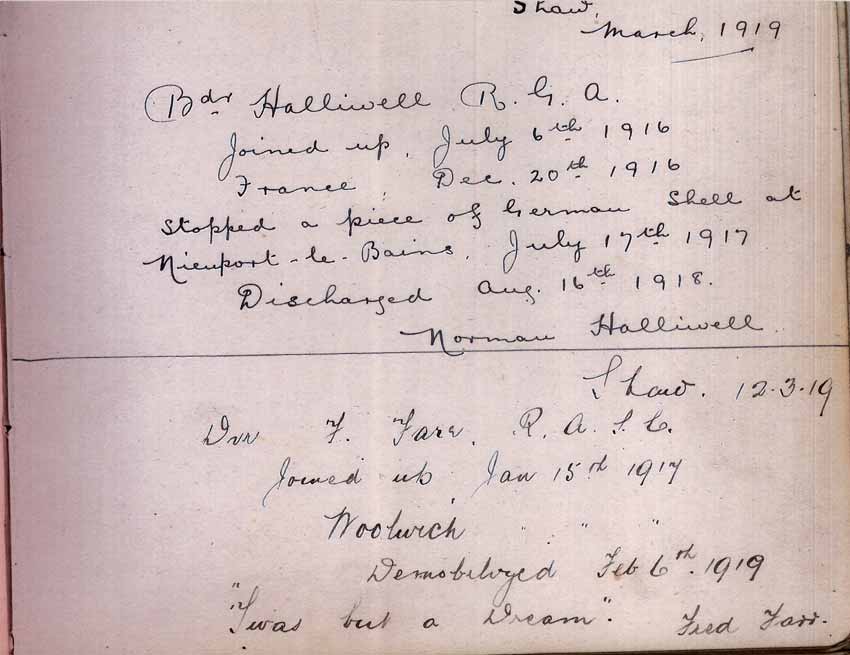 Shaw,
March, 1919
Bdr Halliwell R. G. A.
Joined up, July 6th 1916
France, Dec. 20th 1916
Stopped a piece of German Shell at
Nieuport-le-Bains, July 17th 1917
Discharged Aug. 16th 1918.
Norman Halliwell.
Shaw. 12.3.19
Dvr F. Farr. R. A. S. C.
Joined up, Jan 15th 1917
Woolwich " " "
Demobilyzed Feb 6th. 1919
"'Twas but a Dream". Fred Farr.